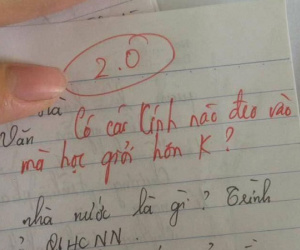 2.0
và Có các kính nào đeo vào
văn mà học giỏi hơn K?
nhà nước là gì? Trình
QLHCNN.